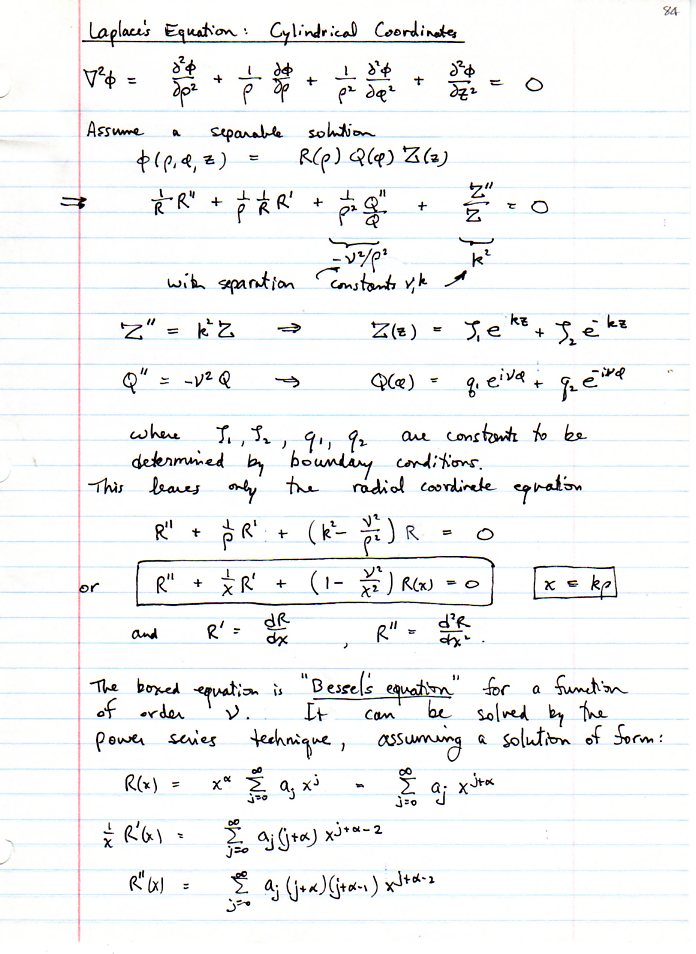 84
Laplace's Equation: Cylindrical Coordinates
∇²ϕ = ∂²ϕ/∂ρ² + 1/ρ ∂ϕ/∂ρ + 1/ρ² ∂²ϕ/∂φ² + ∂²ϕ/∂z² = 0
Assume a separable solution
ϕ(ρ,φ,z) = R(ρ) Q(φ) Z(z)
⇒ 1/R R'' + 1/ρ 1/R R' + 1/ρ² Q''/Q + Z''/Z = 0
-ν²/ρ² k²
with separation constants ν,k
Z'' = k²Z ⇒ Z(z) = ζ₁ e^{kz} + ζ₂ e^{-kz}
Q'' = -ν² Q ⇒ Q(φ) = q₁ e^{iνφ} + q₂ e^{-iνφ}
where ζ₁, ζ₂, q₁, q₂ are constants to be
determined by boundary conditions.
This leaves only the radial coordinate equation
R'' + 1/ρ R' + (k² - ν²/ρ²) R = 0
or R'' + 1/x R' + (1 - ν²/x²) R(x) = 0 x ≡ kρ
and R' = dR/dx , R'' = d²R/dx² .
The boxed equation is "Bessel's equation" for a function
of order ν. It can be solved by the
power series technique, assuming a solution of form:
R(x) = x^α ∑_{j=0}^∞ a_j x^j = ∑_{j=0}^∞ a_j x^{j+α}
1/x R'(x) = ∑_{j=0}^∞ a_j (j+α) x^{j+α-2}
R''(x) = ∑_{j=0}^∞ a_j (j+α)(j+α-1) x^{j+α-2}